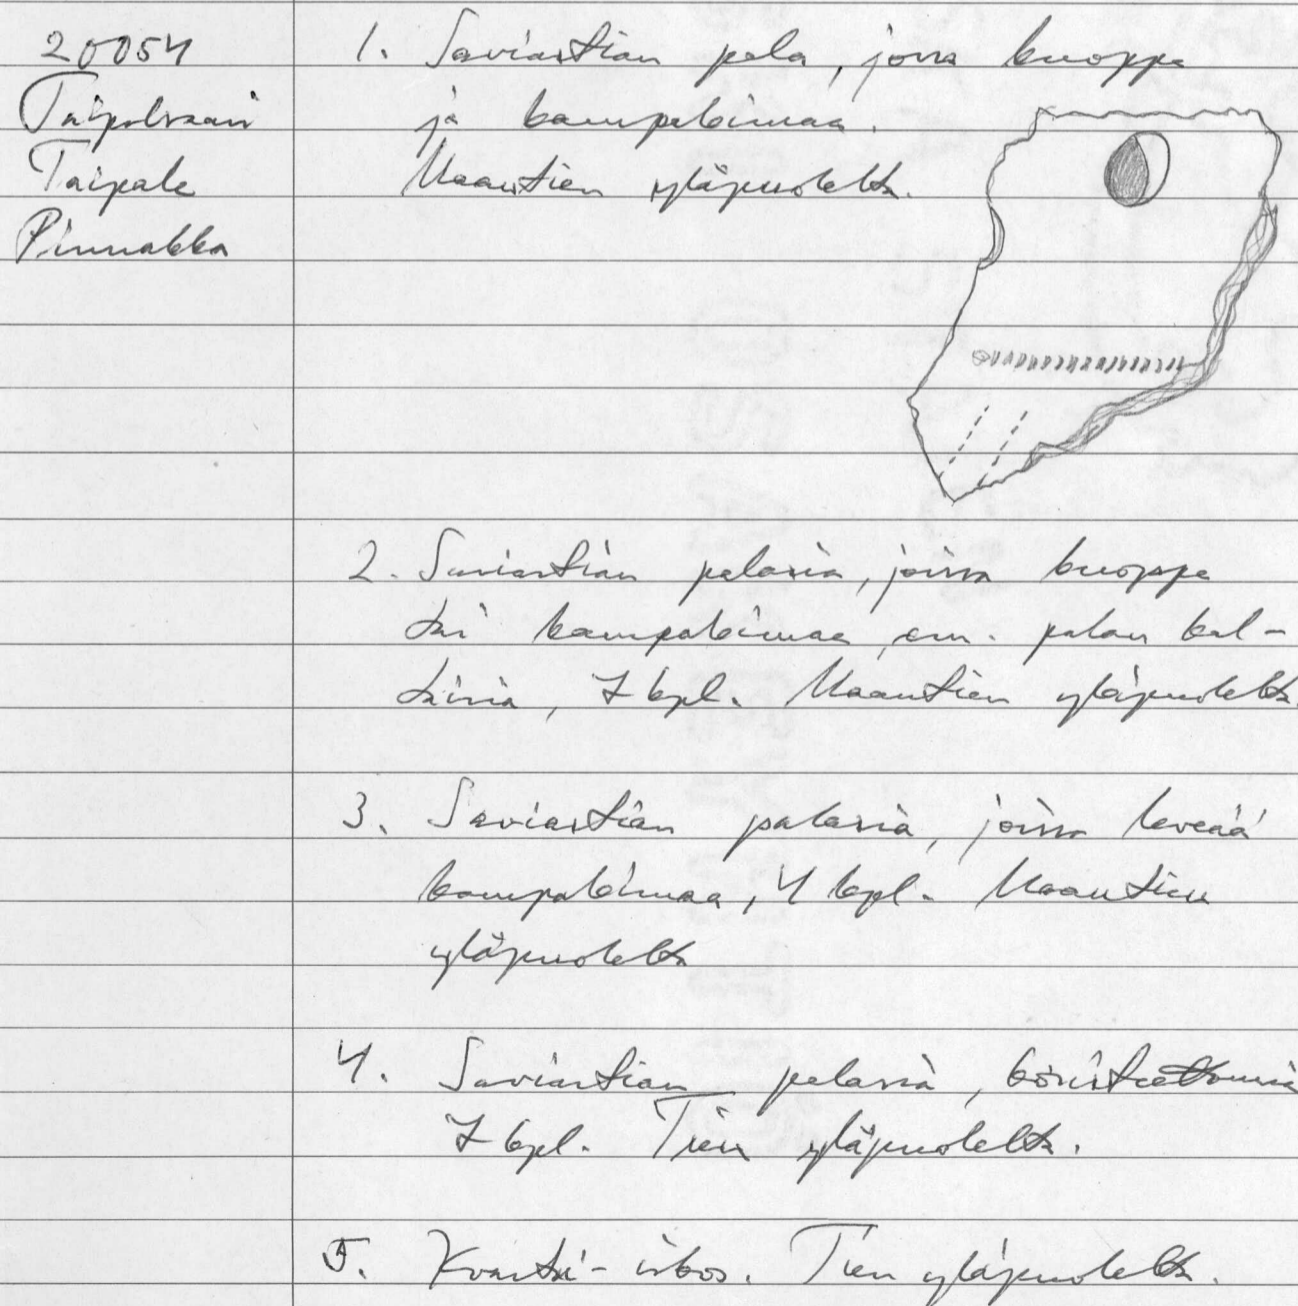 20054
Taipalsaari
Taipale
Pinnakka
1. Saviastian pala, jossa kuoppa
ja kampaleimaa.
Maantien yläpuolelta.
2. Saviastian palasia, joissa kuoppa
tai kampaleimaa, em. palan kal-
taisia, 7 kpl. Maantien yläpuolelta.
3. Saviastian palasia, joissa leveää
kampaleimaa, 4 kpl. Maantien
yläpuolelta
4. Saviastian palasia, koristeettomia
7 kpl. Tien yläpuolelta.
5. Kvartsi-iskos. Tien yläpuolelta.